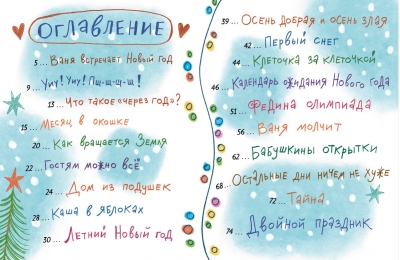 Оглавление
5... Ваня встречает Новый год
9 ... Уиу! Уиу! Пщ-щ-щ-щ!
13... Что такое «через год»?
15... Месяц в окошке
20 ... Как вращается Земля
22... Гостям можно всё
24 ... Дом из подушек
28 ... Каша в яблоках
30 ... Летний Новый год
39... Осень добрая и осень злая
42 ... Первый снег
44 ... Клеточка за клеточкой
46 ... Календарь ожидания Нового года
51 ... Федина олимпиада
56 ... Ваня молчит
62 ... Бабушкины открытки
68... Остальные дни ничем не хуже
72 ... Тайна
74 ... Двойной праздник